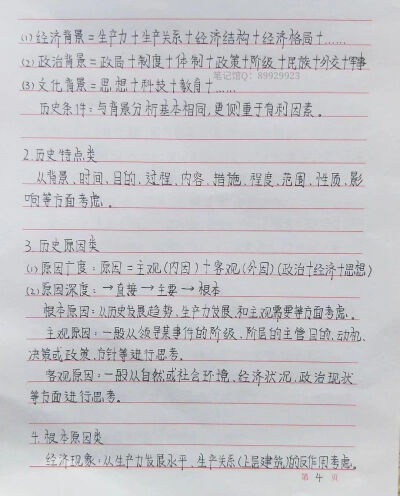 (1) 经济背景=生产力+生产关系+经济结构+经济格局+……
(2) 政治背景=政局+制度+体制+政策+阶级+民族+外交+军事
笔记馆Q：89929923
(3) 文化背景=思想+科技+教育+……
历史条件：与背景分析基本相同，更侧重于有利因素。
2.历史特点类
从背景、时间、目的、过程、内容、措施、程度、范围、性质、影
响等方面考虑。
3.历史原因类
(1)原因广度：原因=主观(内因)+客观(外因)(政治+经济+思想)
(2)原因深度：→直接→主要→根本
根本原因：从历史发展趋势、生产力发展、和主观需要等方面考虑。
主观原因：一般从领导某事件的阶级、阶层的主管目的、动机、
决策或政策、方针等进行思考。
客观原因：一般从自然或社会环境、经济状况、政治现状
等方面进行思考。
4.根本原因类
经济现象：从生产力发展水平、生产关系(上层建筑)的反作用考虑。
第 4 页